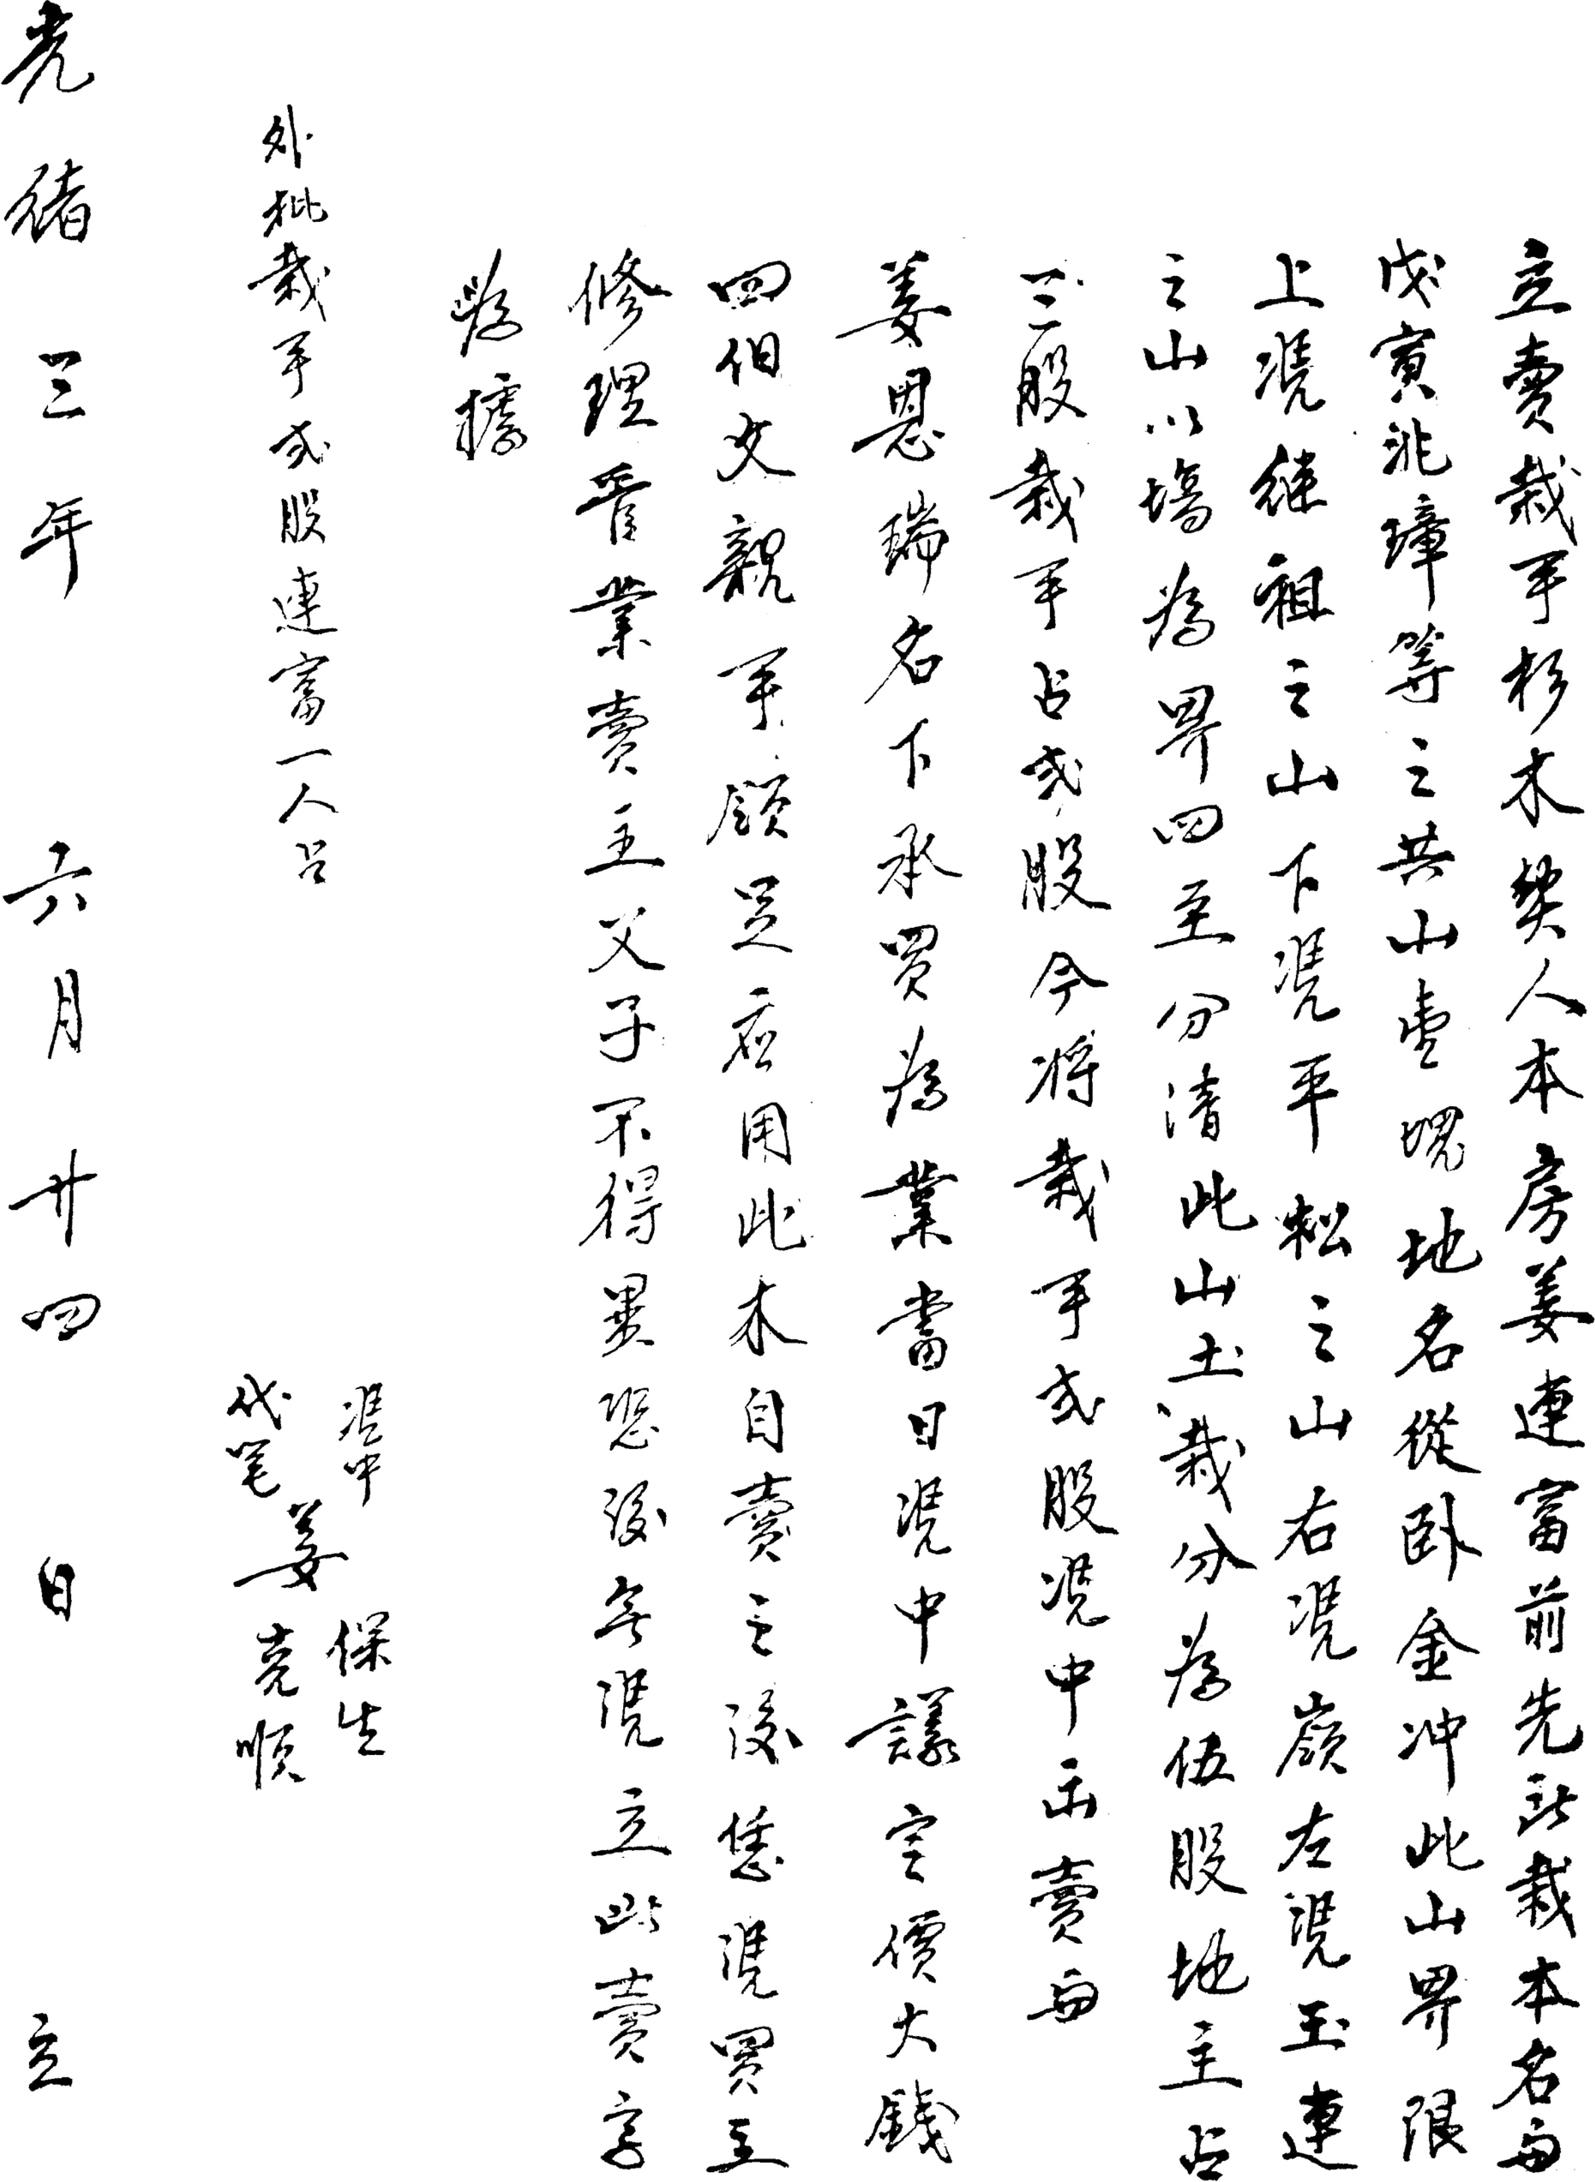 立賣栽手杉木契人本房姜連富前先詃栽本名与
戊寅兆璋等之共山壹塊地名從卧金冲此山界限
上凴継祖之山下凴平松之山右凴嶺左凴玉連
之山以塲為界四至分清此山土栽分為伍股地主占
三股栽手占弍股今將栽手弍股凴中出賣与
姜恩瑞名下承買為業當日凴中議定價大錢
四伯文親手領足应用此木自賣之後恁凴買主
修理管業賣主父子不得異恐後無凴立此賣字
為據
外批栽手弍股連富一人占
凴中 保生
代笔 姜 克順
光緒三年六月廿四日立